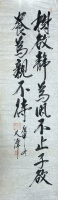 樹欲靜而風不止子欲
養而親不待